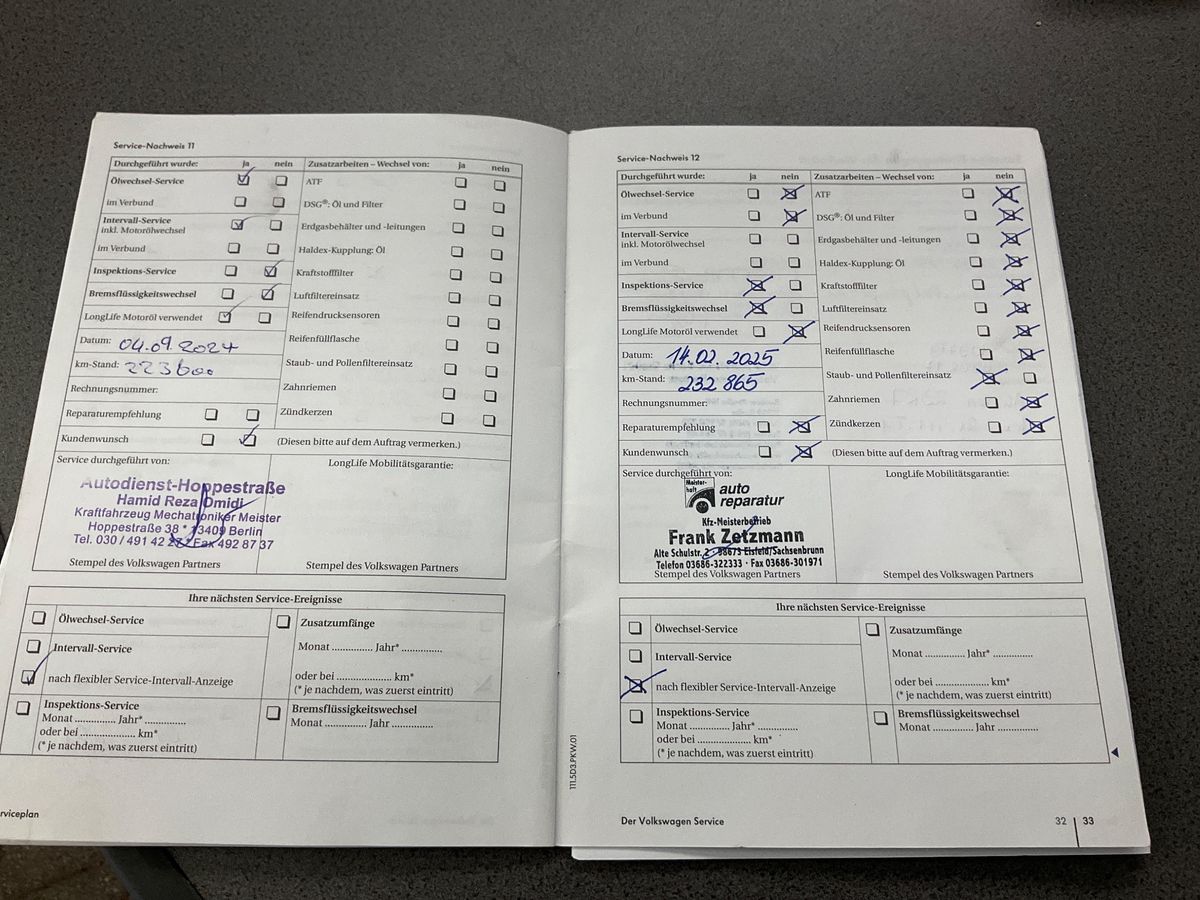 Service-Nachweis 11
Durchgeführt wurde: ja nein
Zusatzarbeiten – Wechsel von: ja nein
Ölwechsel-Service
im Verbund
Intervall-Service
inkl. Motorölwechsel
im Verbund
Inspektions-Service
Bremsflüssigkeitswechsel
LongLife Motoröl verwendet
Datum: 04.09.2024
km-Stand: 223600
Rechnungsnummer:
Reparaturempfehlung
Kundenwunsch
(Diesen bitte auf dem Auftrag vermerken.)
ATF
DSG®: Öl und Filter
Erdgasbehälter und -leitungen
Haldex-Kupplung: Öl
Kraftstofffilter
Luftfiltereinsatz
Reifendrucksensoren
Reifenfüllflasche
Staub- und Pollenfiltereinsatz
Zahnriemen
Zündkerzen
Service durchgeführt von:
LongLife Mobilitätsgarantie:
Autodienst-Hoppestraße
Hamid Reza Omidi
Kraftfahrzeug Mechatroniker Meister
Hoppestraße 38 * 13409 Berlin
Tel. 030 / 491 42 * Fax 492 87 37
Stempel des Volkswagen Partners
Stempel des Volkswagen Partners
Ihre nächsten Service-Ereignisse
Ölwechsel-Service
Intervall-Service
nach flexibler Service-Intervall-Anzeige
Inspektions-Service
Monat .............. Jahr* ..............
oder bei ..................... km*
(* je nachdem, was zuerst eintritt)
Zusatzumfänge
Monat .............. Jahr* ..............
oder bei ..................... km*
(* je nachdem, was zuerst eintritt)
Bremsflüssigkeitswechsel
Monat .............. Jahr ..............
rviceplan
Service-Nachweis 12
Durchgeführt wurde: ja nein
Zusatzarbeiten – Wechsel von: ja nein
Ölwechsel-Service
im Verbund
Intervall-Service
inkl. Motorölwechsel
im Verbund
Inspektions-Service
Bremsflüssigkeitswechsel
LongLife Motoröl verwendet
Datum: 14.02.2025
km-Stand: 232 865
Rechnungsnummer:
Reparaturempfehlung
Kundenwunsch
(Diesen bitte auf dem Auftrag vermerken.)
ATF
DSG®: Öl und Filter
Erdgasbehälter und -leitungen
Haldex-Kupplung: Öl
Kraftstofffilter
Luftfiltereinsatz
Reifendrucksensoren
Reifenfüllflasche
Staub- und Pollenfiltereinsatz
Zahnriemen
Zündkerzen
Service durchgeführt von:
LongLife Mobilitätsgarantie:
Meister-
haft
auto
reparatur
Kfz-Meisterbetrieb
Frank Zetzmann
Alte Schulstr. 2 · 98673 Eisfeld/Sachsenbrunn
Telefon 03686-322333 · Fax 03686-301971
Stempel des Volkswagen Partners
Stempel des Volkswagen Partners
Ihre nächsten Service-Ereignisse
Ölwechsel-Service
Intervall-Service
nach flexibler Service-Intervall-Anzeige
Inspektions-Service
Monat .............. Jahr* ..............
oder bei ..................... km*
(* je nachdem, was zuerst eintritt)
Zusatzumfänge
Monat .............. Jahr* ..............
oder bei ..................... km*
(* je nachdem, was zuerst eintritt)
Bremsflüssigkeitswechsel
Monat .............. Jahr ..............
111.5D3.PKW.01
Der Volkswagen Service
32 | 33